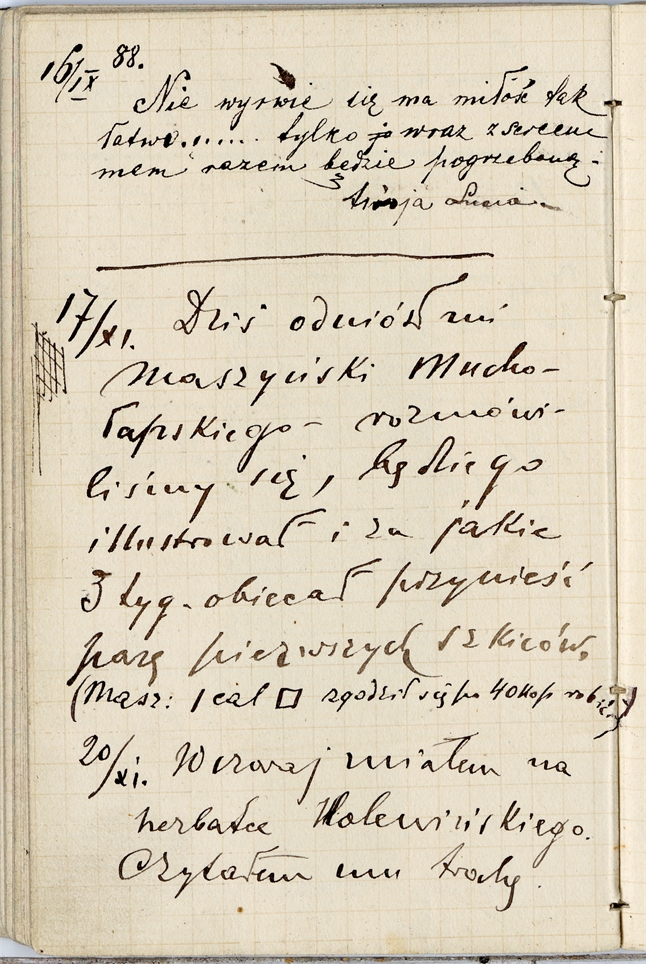 16/IX 88.
Nie wyrwie się ma miłość tak
łatwo....... tylko wraz z sercem
mem razem będzie pogrzebaną.
twoja Lucia
17/XI. Dziś odniósł mi
Maszyński Mucho-
łapskiego - rozmówi-
liśmy się, będzie go
illustrował i za jakie
3 tyg. obiecał przynieść
parę pierwszych szkiców.
(Masz: 1 cal □ zgodził się po 40 kop robić)
20/XI. Wczoraj miałem na
herbatce Holewińskiego.
Czytałem mu trochę.